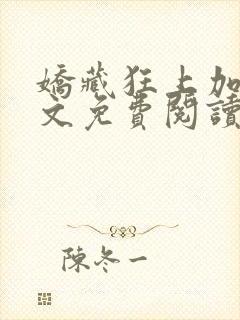 嬌藏狂上加
文免費閱讀
陳冬一